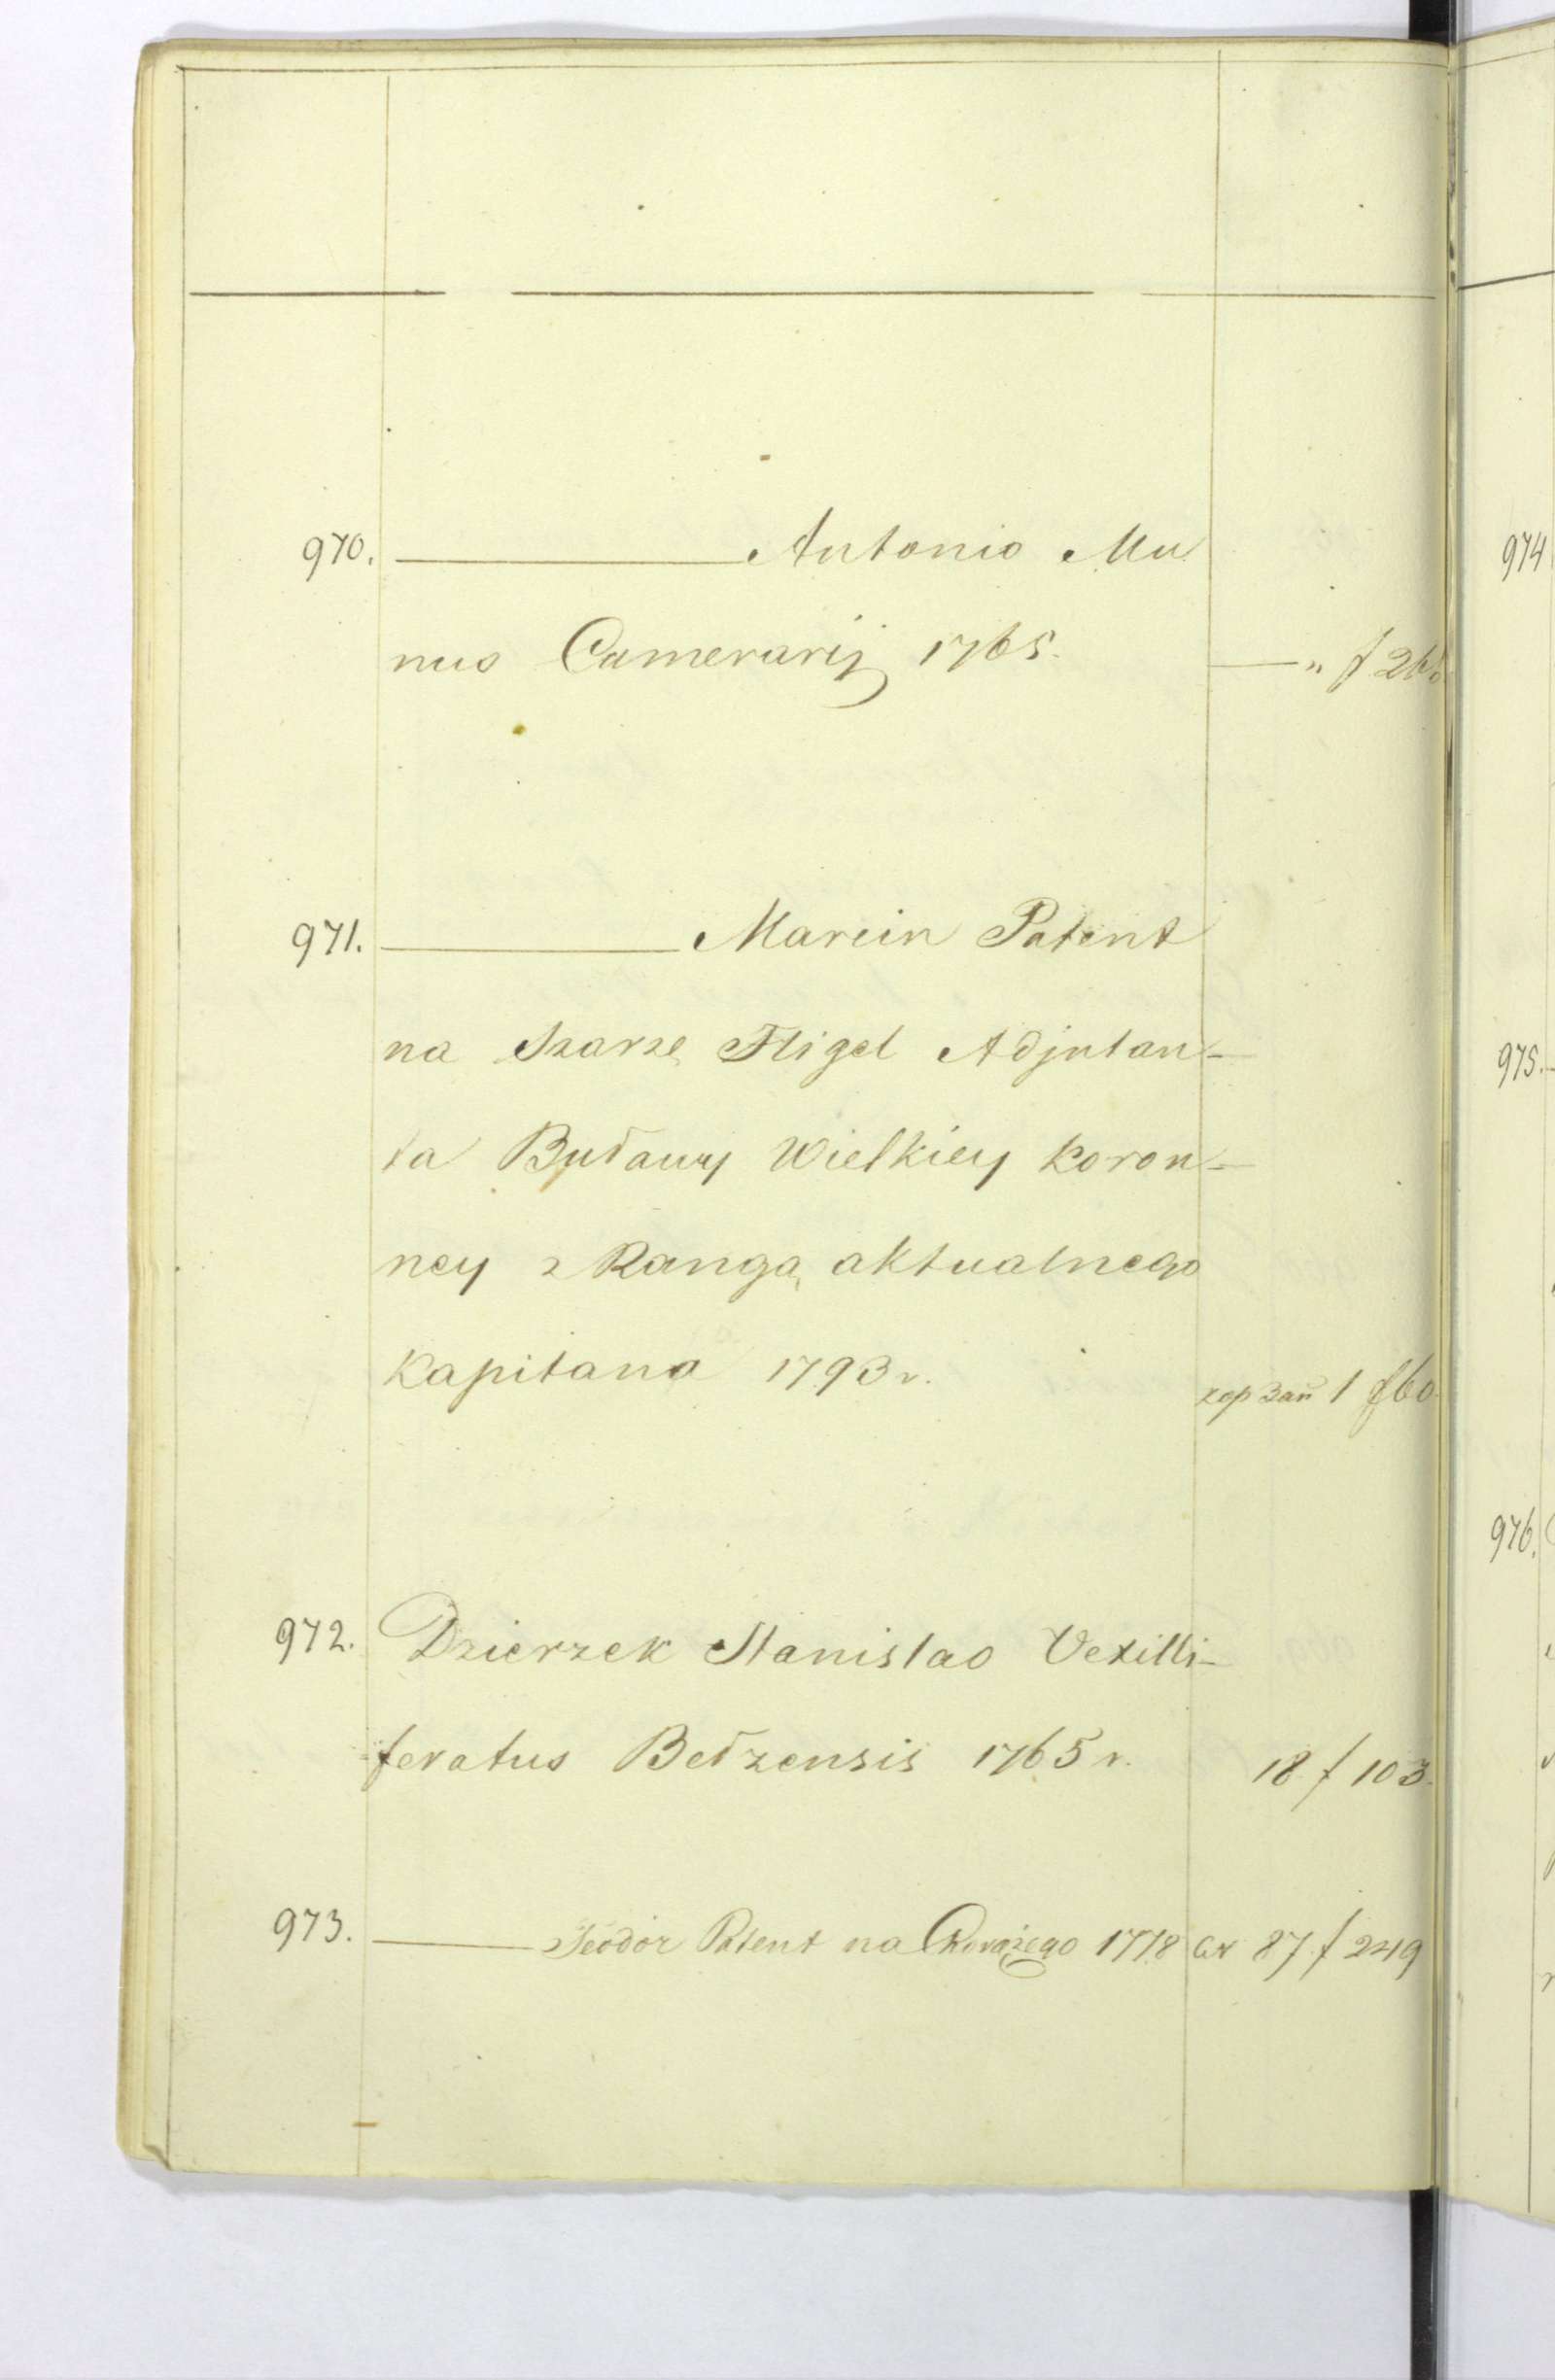 970. Antonio Mu
nus Camerarij 1765. " f 26
971. Marcin Patent
na Szarżę Fligel Adjutan-
ta Buławy Wielkiey koron-
ney z Rangą aktualnego
Kapitana 1793 r. f 60
972. Dzierzek Stanislao Vexilli-
feratus Bełzensis 1765 r. 18 f 103.
973. Teodor Patent na Chorążego 1778 87 f 249
974
975.
976.